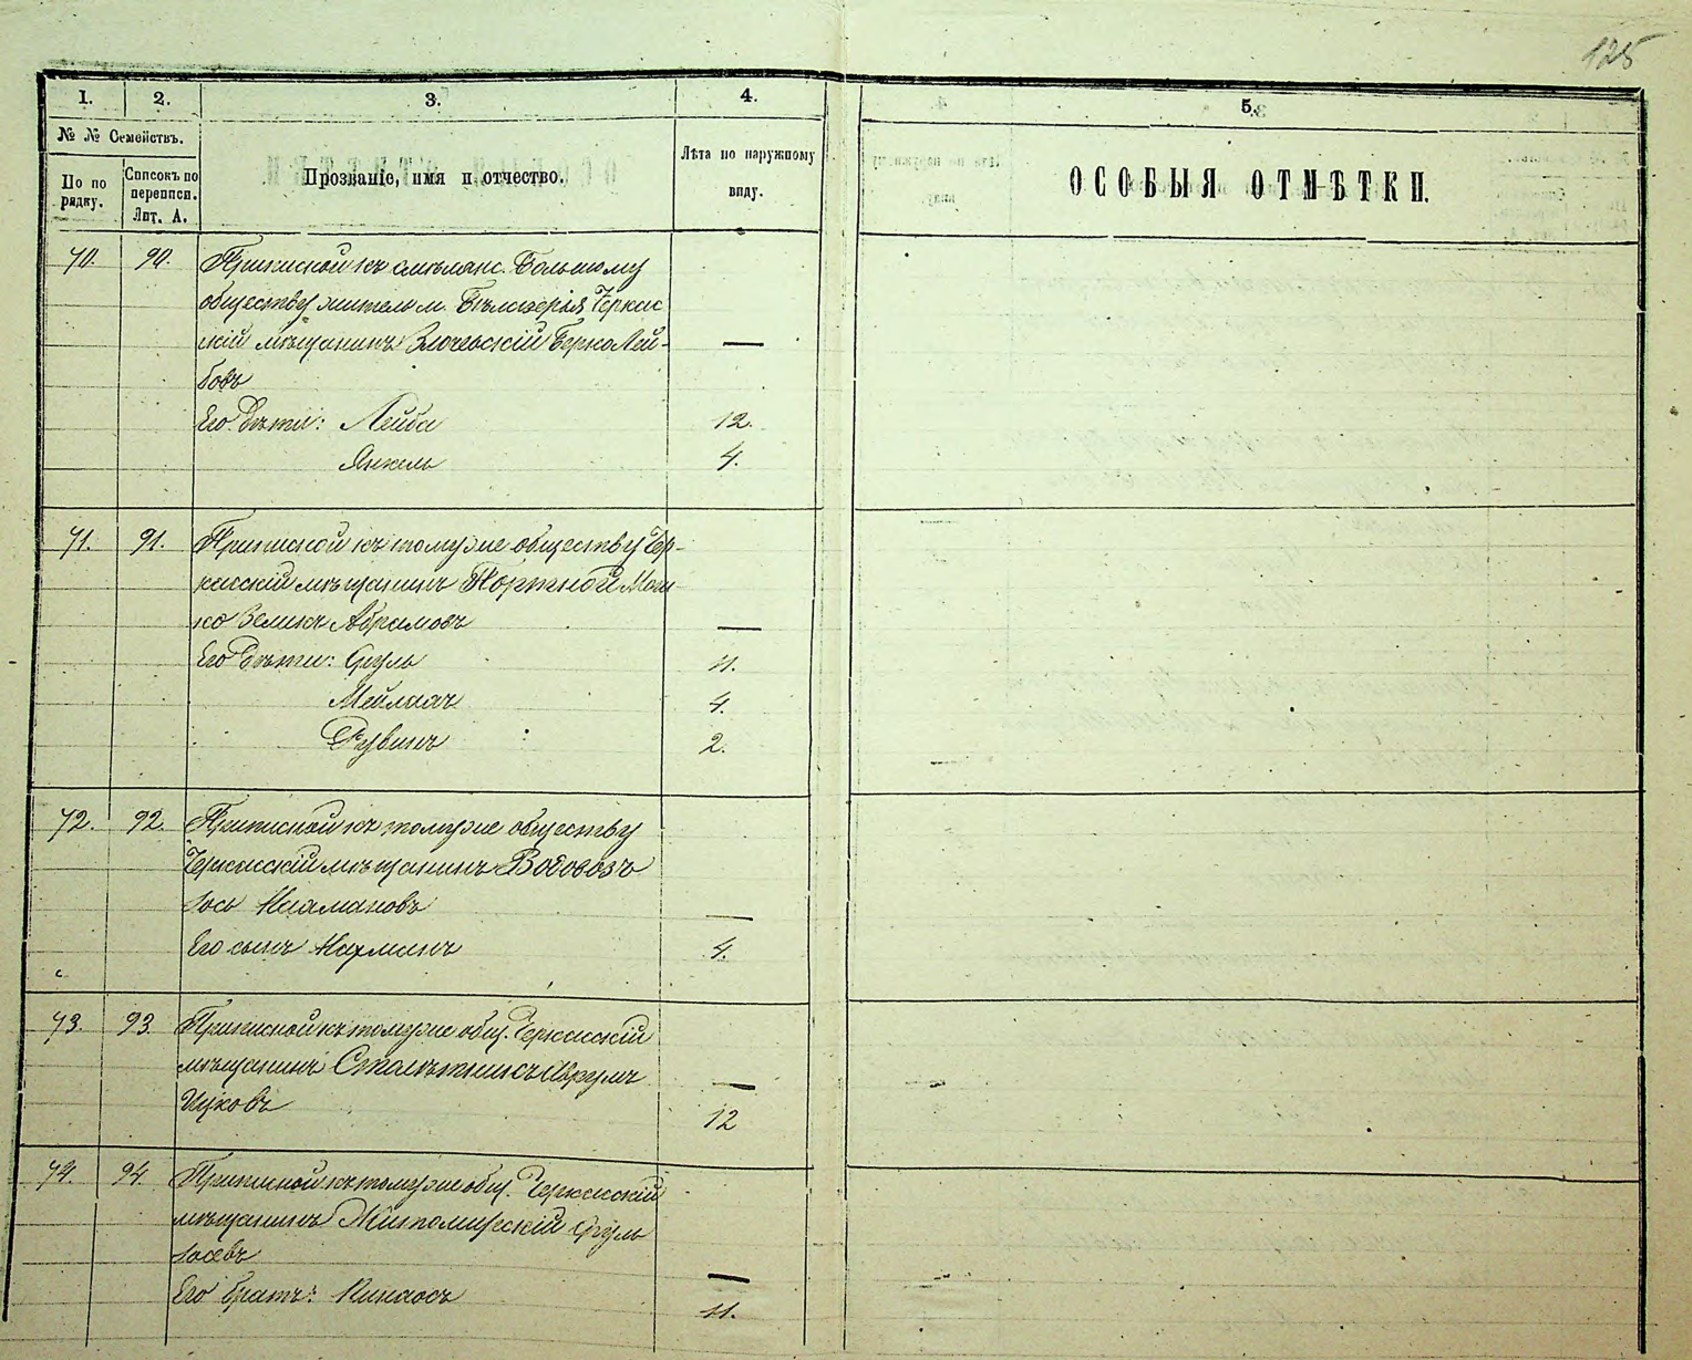 125
1. 2. 3. 4. 5.
№ № Семействъ.
По по рядку.
Списокъ по переписи. Лит. А.
Прозваніе, имя и отчество.
Лѣта по наружному виду.
ОСОБЫЯ ОТМѢТКИ.
70. 90. Приписной къ смѣлянс. Большому
обществу жителъ м. Бѣлозерья Черкас
скій мѣщанинъ Злочевскій Берко Лей-
бовъ —
Его дѣти: Лейба 12.
Янкель 4.
71. 91. Приписной къ тому же обществу Чер-
касскій мѣщанинъ Портной Мош
ко Зеликъ Абрамовъ —
Его дѣти: Сруль 11.
Мейлахъ 4.
Рувинъ 2.
72. 92. Приписной къ тому же обществу
Черкасскій мѣщанинъ Водовозъ
Іось Нахмановъ —
Его сынъ Нахманъ 4.
73. 93. Приписной къ тому же общ. Черкасскій
мѣщанинъ Аврумъ —
Ицковъ 12
74. 94. Приписной къ тому же общ. Черкасскій
мѣщанинъ Житомирскій Сруль
Іосевъ —
Его братъ: Пинхосъ 11.